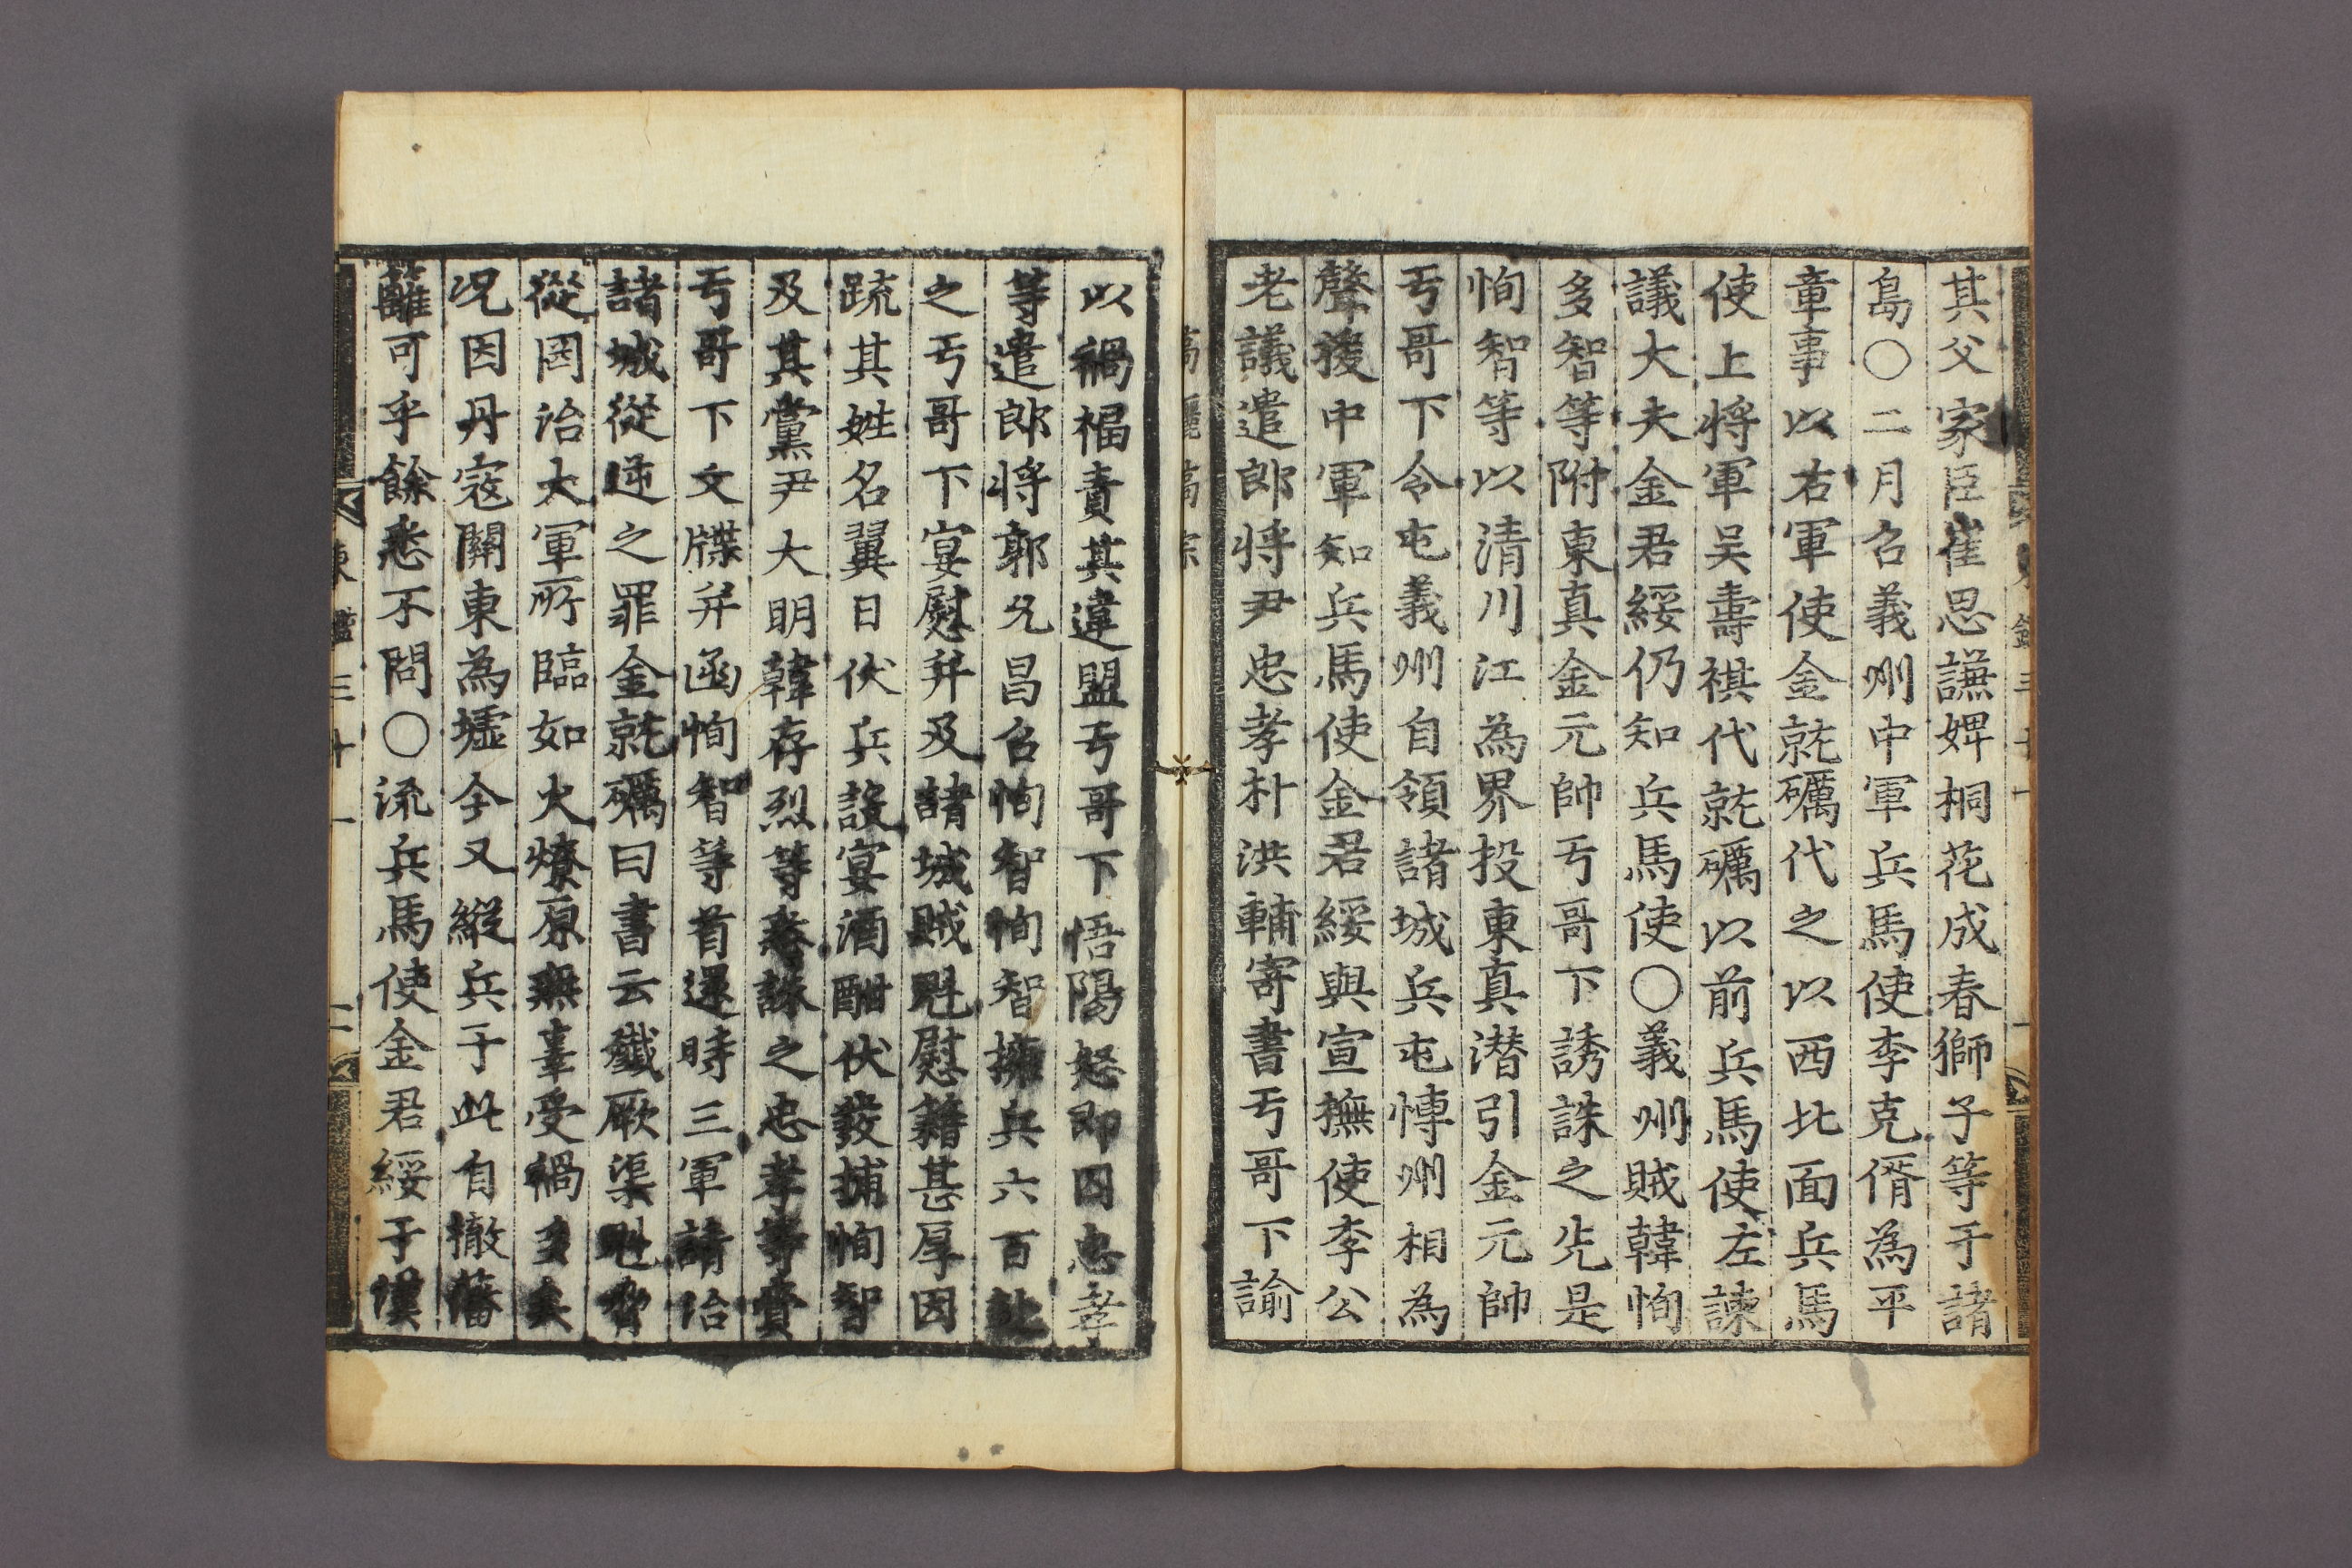 其父家臣崔思謙婢桐花成春獅子等于諸
島〇二月召義州中軍兵馬使李克偦為平
章事以右軍使金就礪代之以西北面兵馬
使上將軍吴壽祺代就礪以前兵馬使左諫
議大夫金君綏仍知兵馬使〇義州賊韓恂
多智等附東真金元帥亏哥下誘誅之先是
恂智等以清川江為界投東真潜引金元帥
亏哥下令屯義州自領諸城兵屯慱州相為
聲援中軍知兵馬使金君綏與宣撫使李公
老議遣郎將尹忠孝朴洪輔寄書亏哥下諭
高麗高宗
以禍福責其違盟亏哥下悟陽怒即囚忠孝
等遣郎將郭允昌召恂智恂智擁兵六百赴
之亏哥下宴慰并及諸城賊魁慰藉甚厚因
䟽其姓名翼日伏兵設宴酒酣伏發捕恂智
及其黨尹大明韓存烈等悉誅之忠孝等賫
亏哥下文牒并函恂智等首還時三軍請治
諸城從逆之罪金就礪曰書云殲厥渠魁脅
從罔治大軍所臨如火燎原無辜受禍多矣
况因丹寇關東為墟今又縱兵于此自撤藩
籬可乎餘悉不問〇流兵馬使金君綏于漢
東鑑三十一 二